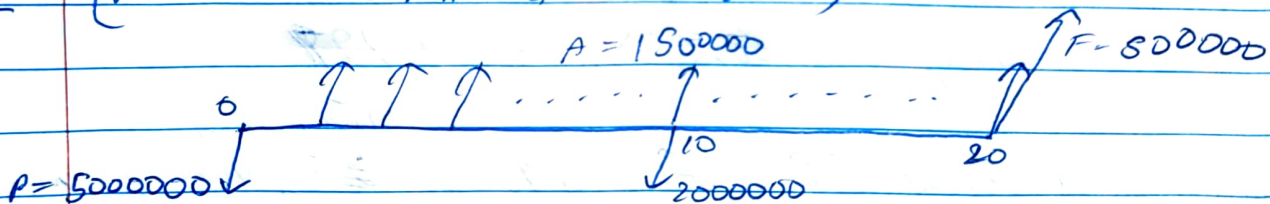 A = 1500000
F- 500000
0
10
20
P= 5000000
2000000